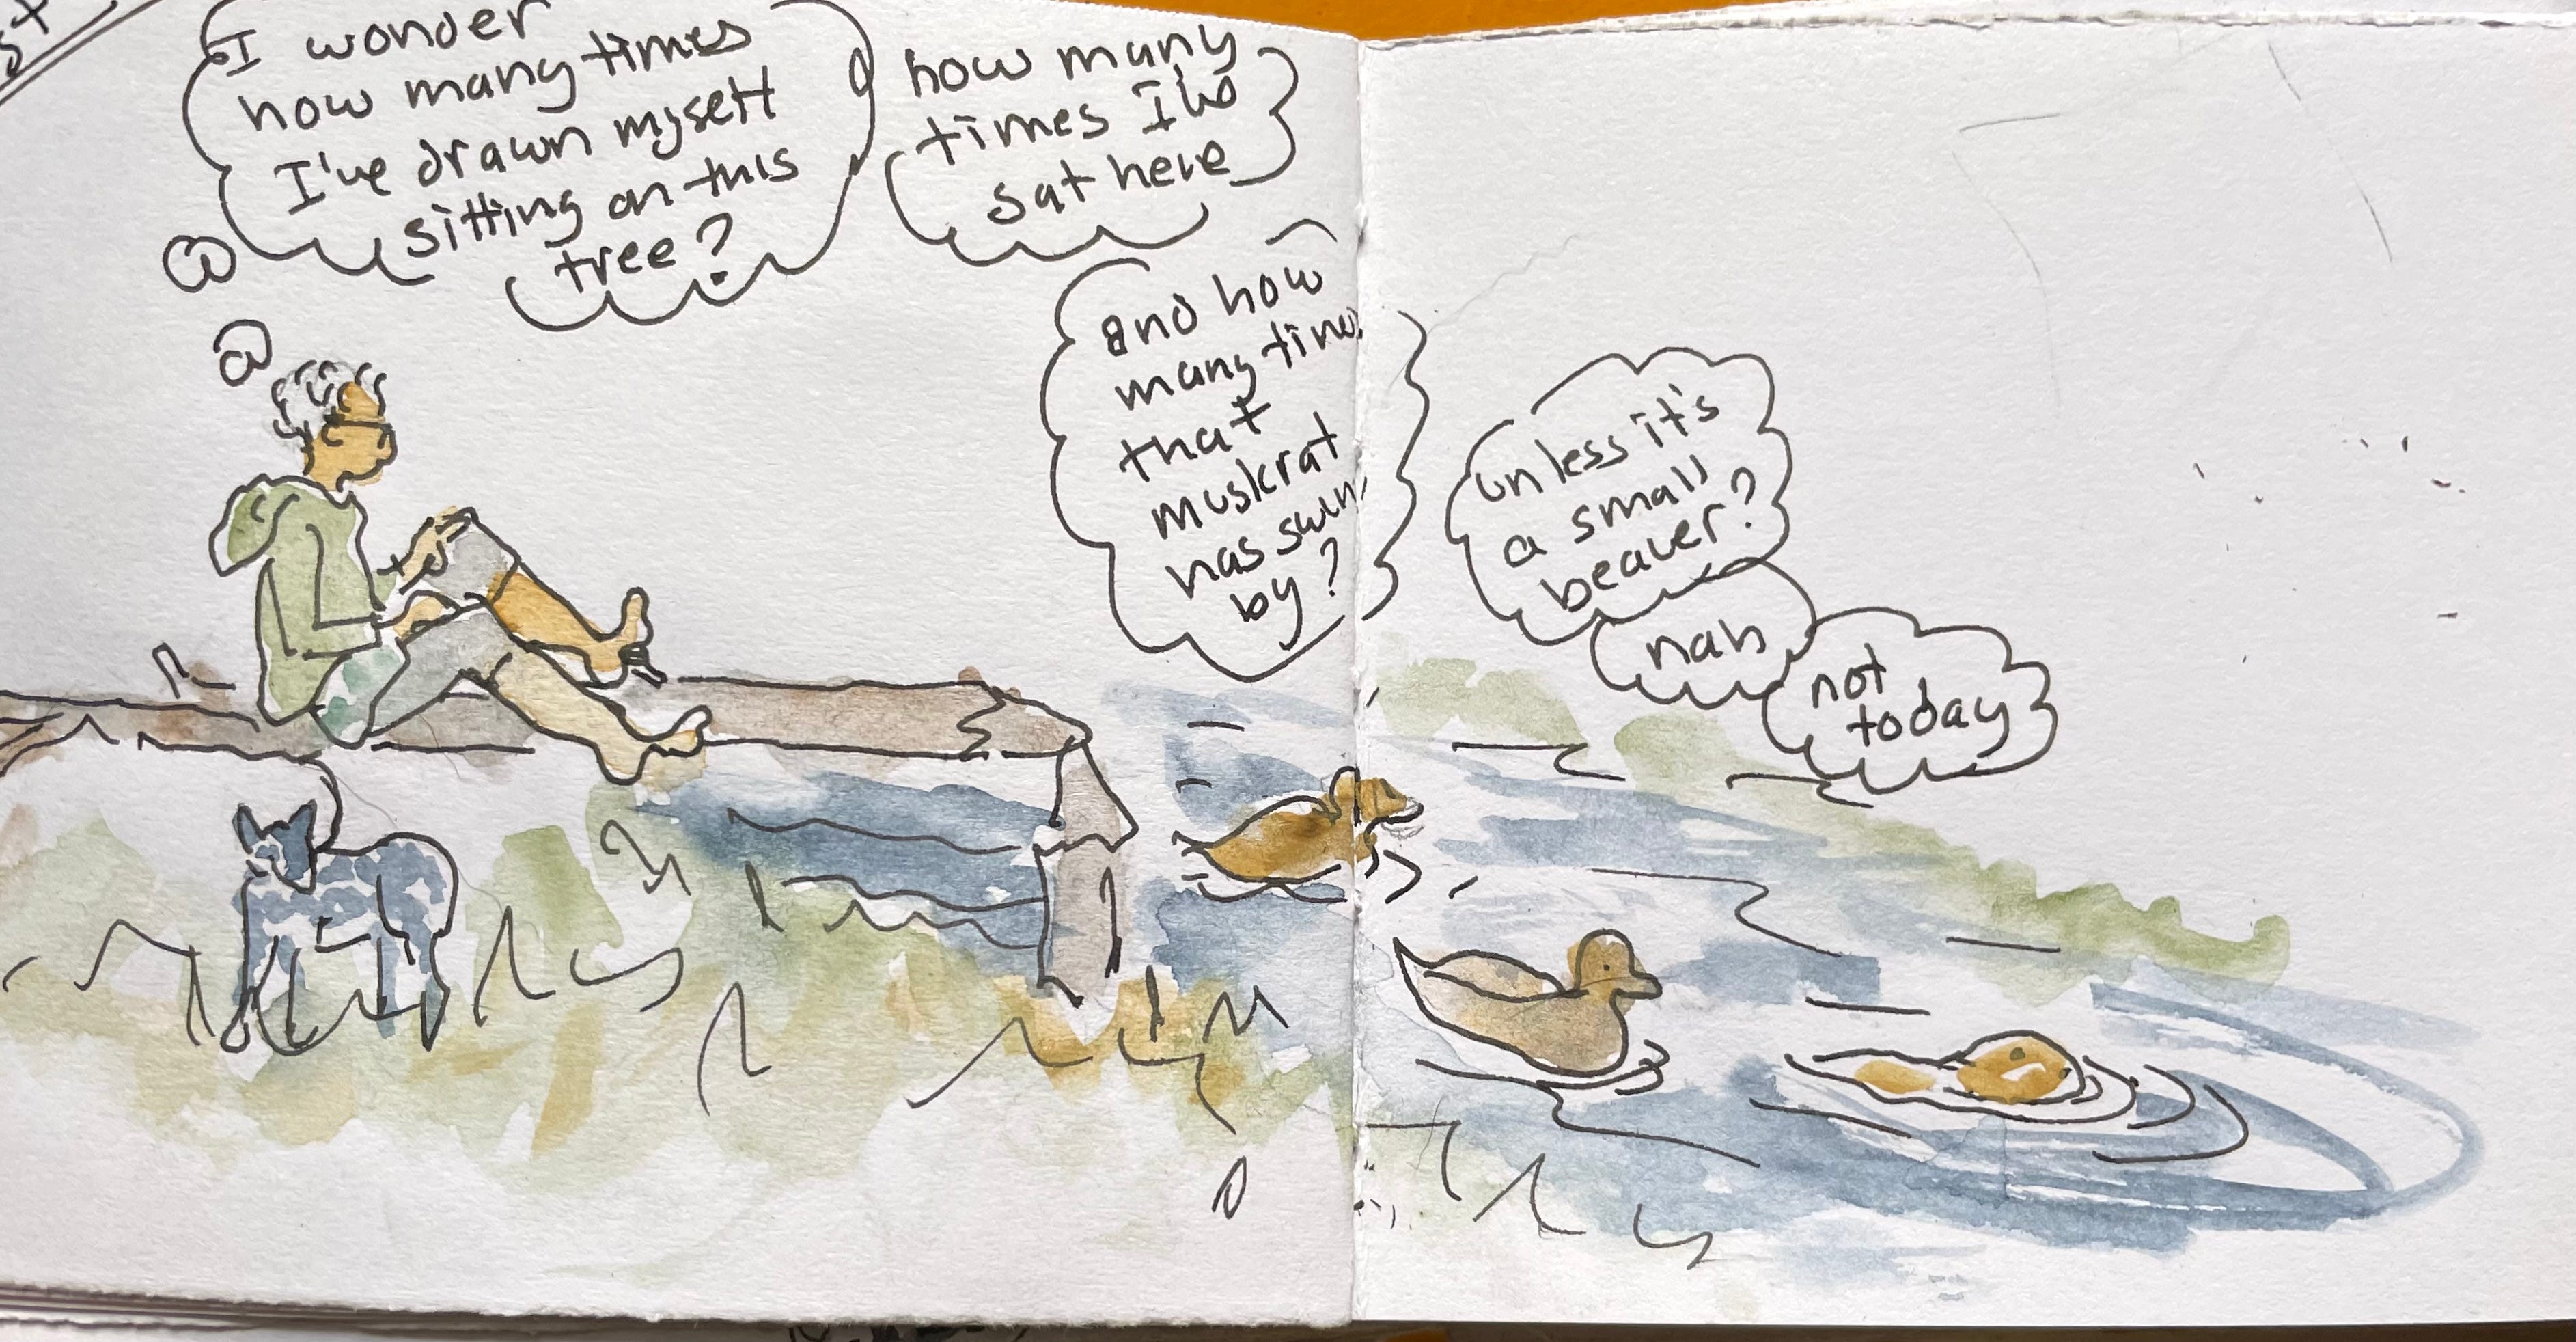 st
I wonder
how many times
I've drawn myself
sitting on this
tree?
how many
times I've
sat here
and how
many times
that
muskrat
has swum
by?
unless it's
a small
beaver?
nah
not
today